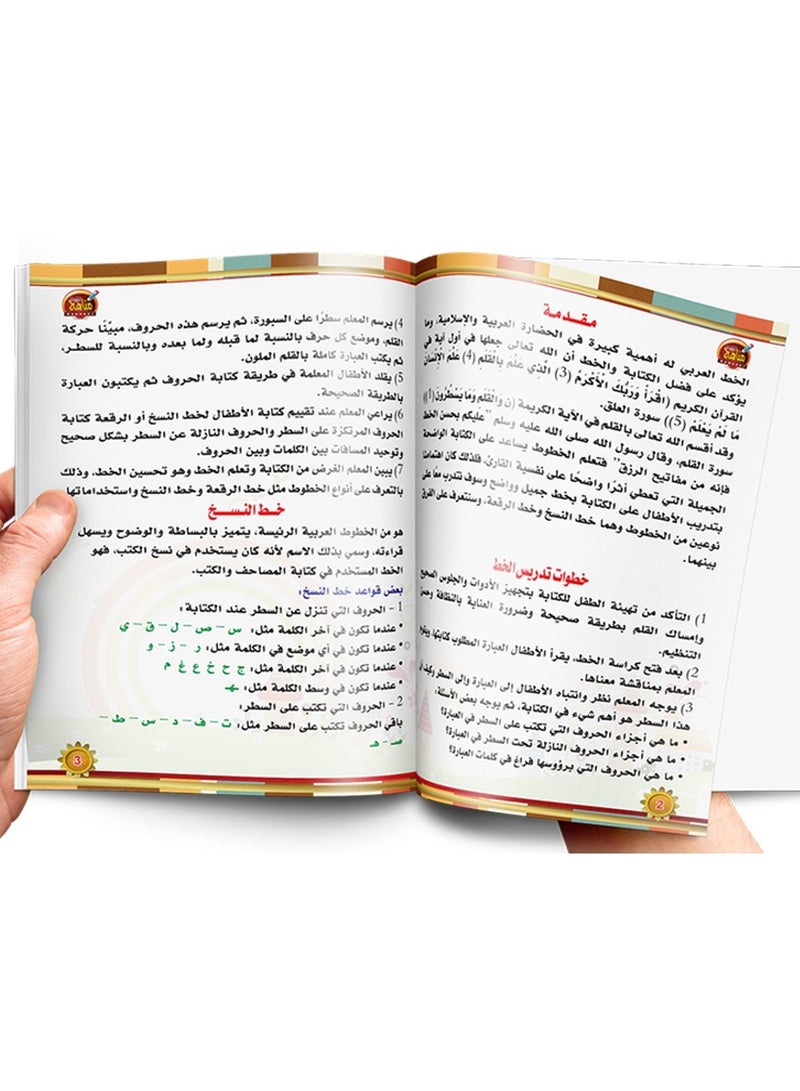 مناهج
مقدمة
الخط العربي له أهمية كبيرة في الحضارة العربية والإسلامية، وما
يؤكد على فضل الكتابة والخط أن الله تعالى جعلها في أول آية في
القرآن الكريم (اقْرَأْ وَرَبُّكَ الْأَكْرَمُ (3) الَّذِي عَلَّمَ بِالْقَلَمِ (4) عَلَّمَ الْإِنْسَانَ
مَا لَمْ يَعْلَمْ (5)) سورة العلق.
وقد أقسم الله تعالى بالقلم في الآية الكريمة (ن وَالْقَلَمِ وَمَا يَسْطُرُونَ (1))
سورة القلم، وقال رسول الله صلى الله عليه وسلم "عليكم بحسن الخط
فإنه من مفاتيح الرزق" فتعلم الخطوط يساعد على الكتابة الواضحة
الجميلة التي تعطي أثرًا واضحًا على نفسية القارئ، فلذلك كان اهتمامنا
بتدريب الأطفال على الكتابة بخط جميل وواضح وسوف نتدرب معًا على
نوعين من الخطوط وهما خط النسخ وخط الرقعة، وسنتعرف على الفرق
بينهما.
خطوات تدريس الخط
1) التأكد من تهيئة الطفل للكتابة بتجهيز الأدوات والجلوس الصحيح
وإمساك القلم بطريقة صحيحة وضرورة العناية بالنظافة وحسن
التنظيم.
2) بعد فتح كراسة الخط، يقرأ الأطفال العبارة المطلوب كتابتها، ويقوم
المعلم بمناقشة معناها.
3) يوجه المعلم نظر وانتباه الأطفال إلى العبارة وإلى السطر وكيف أن
هذا السطر هو أهم شيء في الكتابة، ثم يوجه بعض الأسئلة:
• ما هي أجزاء الحروف التي تكتب على السطر في العبارة؟
• ما هي أجزاء الحروف النازلة تحت السطر في العبارة؟
• ما هي الحروف التي برؤوسها فراغ في كلمات العبارة؟
2
مناهج
4) يرسم المعلم سطرًا على السبورة، ثم يرسم هذه الحروف، مبيّنًا حركة
القلم، وموضع كل حرف بالنسبة لما قبله ولما بعده وبالنسبة للسطر،
ثم يكتب العبارة كاملة بالقلم الملون.
5) يقلد الأطفال المعلمة في طريقة كتابة الحروف ثم يكتبون العبارة
بالطريقة الصحيحة.
6) يراعي المعلم عند تقييم كتابة الأطفال لخط النسخ أو الرقعة كتابة
الحروف المرتكزة على السطر والحروف النازلة عن السطر بشكل صحيح
وتوحيد المسافات بين الكلمات وبين الحروف.
7) يبين المعلم الغرض من الكتابة وتعلم الخط وهو تحسين الخط، وذلك
بالتعرف على أنواع الخطوط مثل خط الرقعة وخط النسخ واستخداماتها
خط النسخ
هو من الخطوط العربية الرئيسة، يتميز بالبساطة والوضوح ويسهل
قراءته، وسمي بذلك الاسم لأنه كان يستخدم في نسخ الكتب، فهو
الخط المستخدم في كتابة المصاحف والكتب.
بعض قواعد خط النسخ:
1 - الحروف التي تنزل عن السطر عند الكتابة:
• عندما تكون في آخر الكلمة مثل: س – ص – ل – ق – ي
• عندما تكون في أي موضع في الكلمة مثل: ر – ز – و
• عندما تكون في آخر الكلمة مثل: ج ح خ ع غ م
• عندما تكون في وسط الكلمة مثل: ـهـ
2 - الحروف التي تكتب على السطر:
باقي الحروف تكتب على السطر مثل: ت – ف – د – س – ط –
صـ – هـ
3